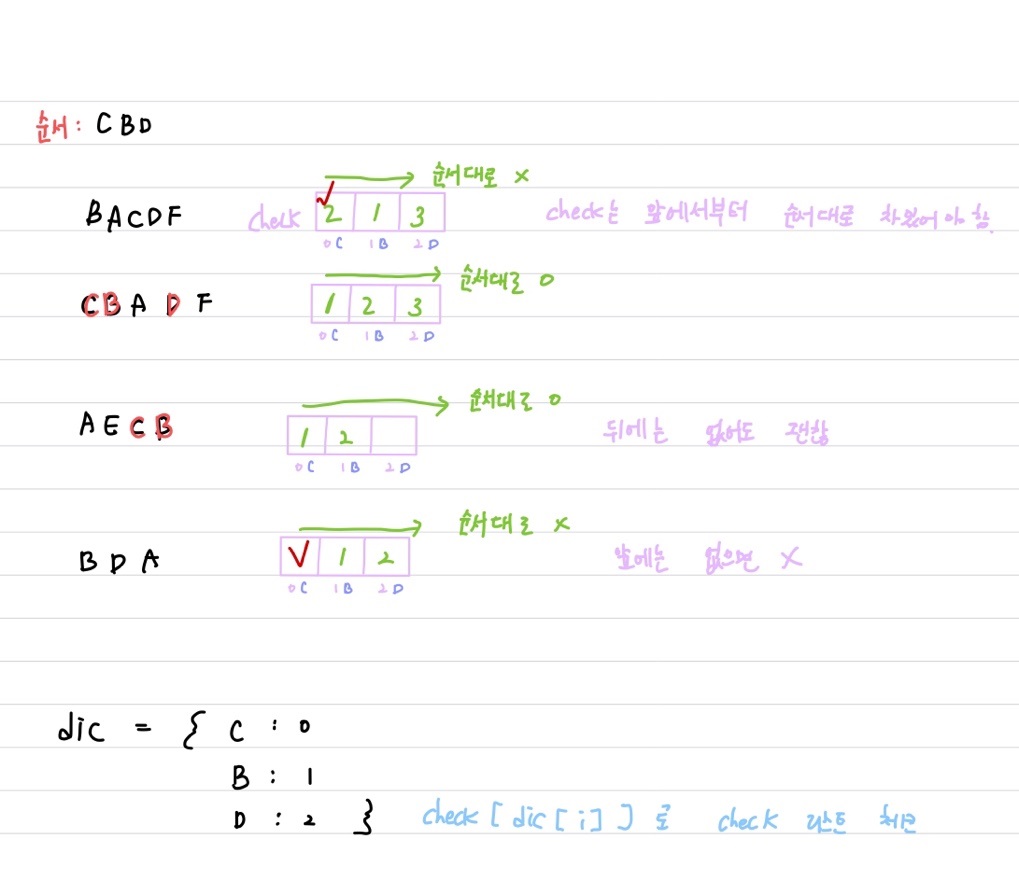 순서: CBD
순서대로 x
BACDF check 2 1 3 check는 앞에서부터 순서대로 차있어야 함.
0 C 1 B 2 D
순서대로 o
CBADF 1 2 3
0 C 1 B 2 D
순서대로 o
AECB 1 2 뒤에는 없어도 괜찮
0 C 1 B 2 D
순서대로 x
BDA 1 2 앞에는 없으면 X
0 C 1 B 2 D
dic = { C : 0
B : 1
D : 2 } check[dic[i]]로 check 리스트 체크